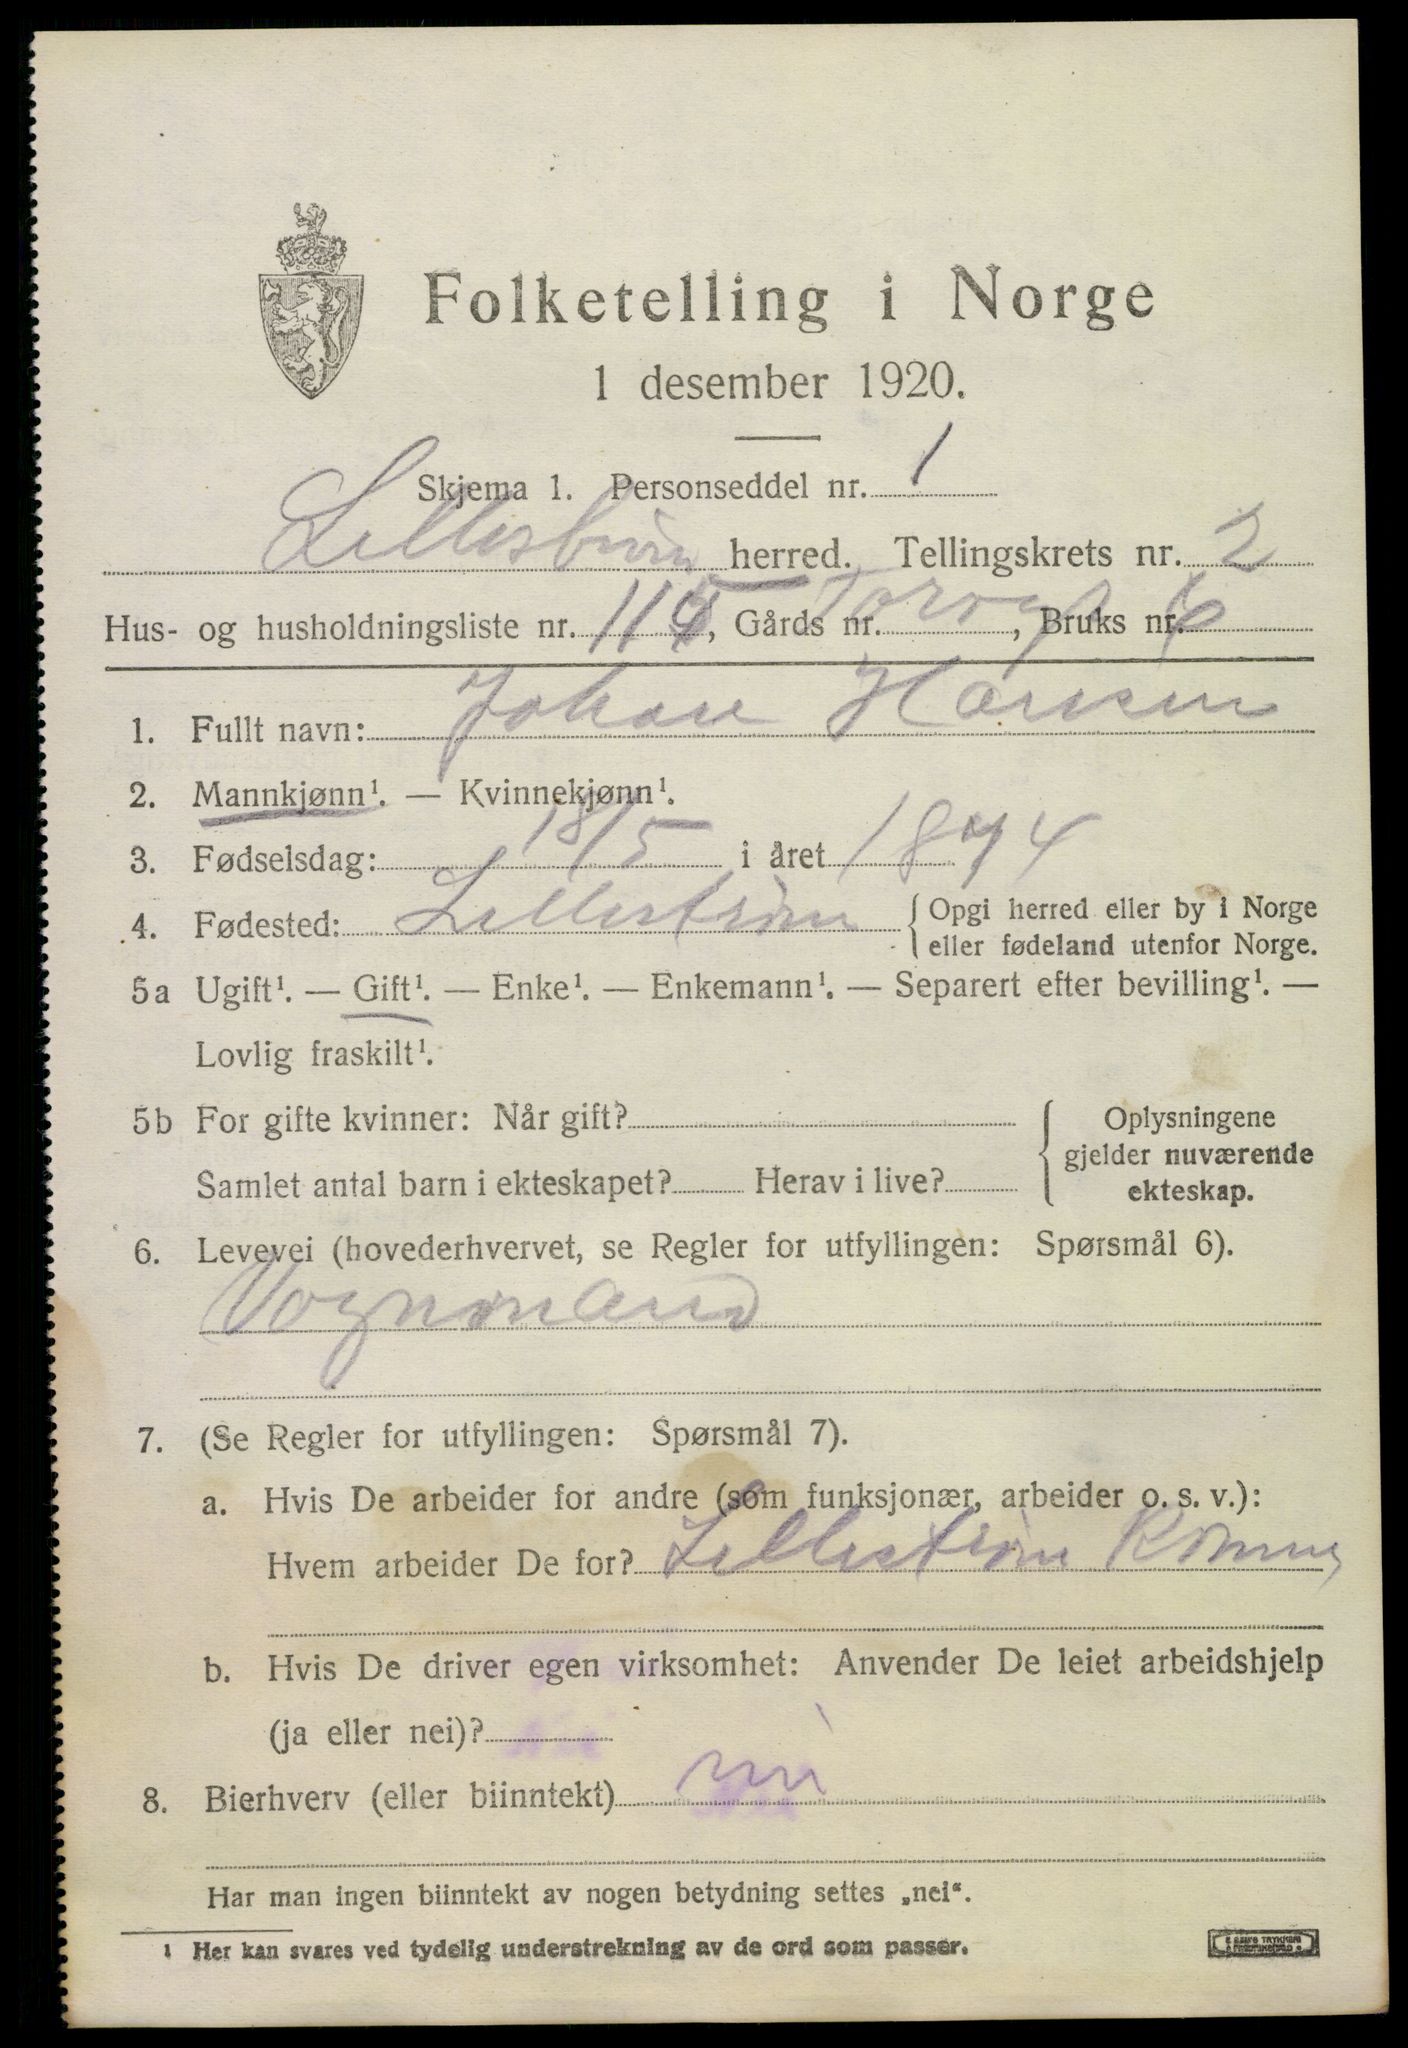 Folketelling i Norge
1 desember 1920.
Skjema 1. Personseddel nr. 1
Lillestrøm herred. Tellingskrets nr. 2
Hus- og husholdningsliste nr. 115, Gårds nr. Torvgt, Bruks nr. 6
1. Fullt navn: Johan Hansen
2. Mannkjønn¹. — Kvinnekjønn¹.
3. Fødselsdag: 18/5 i året 1874
4. Fødested: Lillestrøm { Opgi herred eller by i Norge
eller fødeland utenfor Norge.
5a Ugift¹. — Gift¹. — Enke¹. — Enkemann¹. — Separert efter bevilling¹. —
Lovlig fraskilt¹.
5b For gifte kvinner: Når gift? { Oplysningene
gjelder nuværende
Samlet antal barn i ekteskapet? Herav i live?
ekteskap.
6. Levevei (hovederhvervet, se Regler for utfyllingen: Spørsmål 6).
Vognmand
7. (Se Regler for utfyllingen: Spørsmål 7).
a. Hvis De arbeider for andre (som funksjonær, arbeider o. s. v.):
Hvem arbeider De for? Lillestrøm
b. Hvis De driver egen virksomhet: Anvender De leiet arbeidshjelp
(ja eller nei)?
8. Bierhverv (eller biinntekt) nei
Har man ingen biinntekt av nogen betydning settes „nei“.
1 Her kan svares ved tydelig understrekning av de ord som passer.